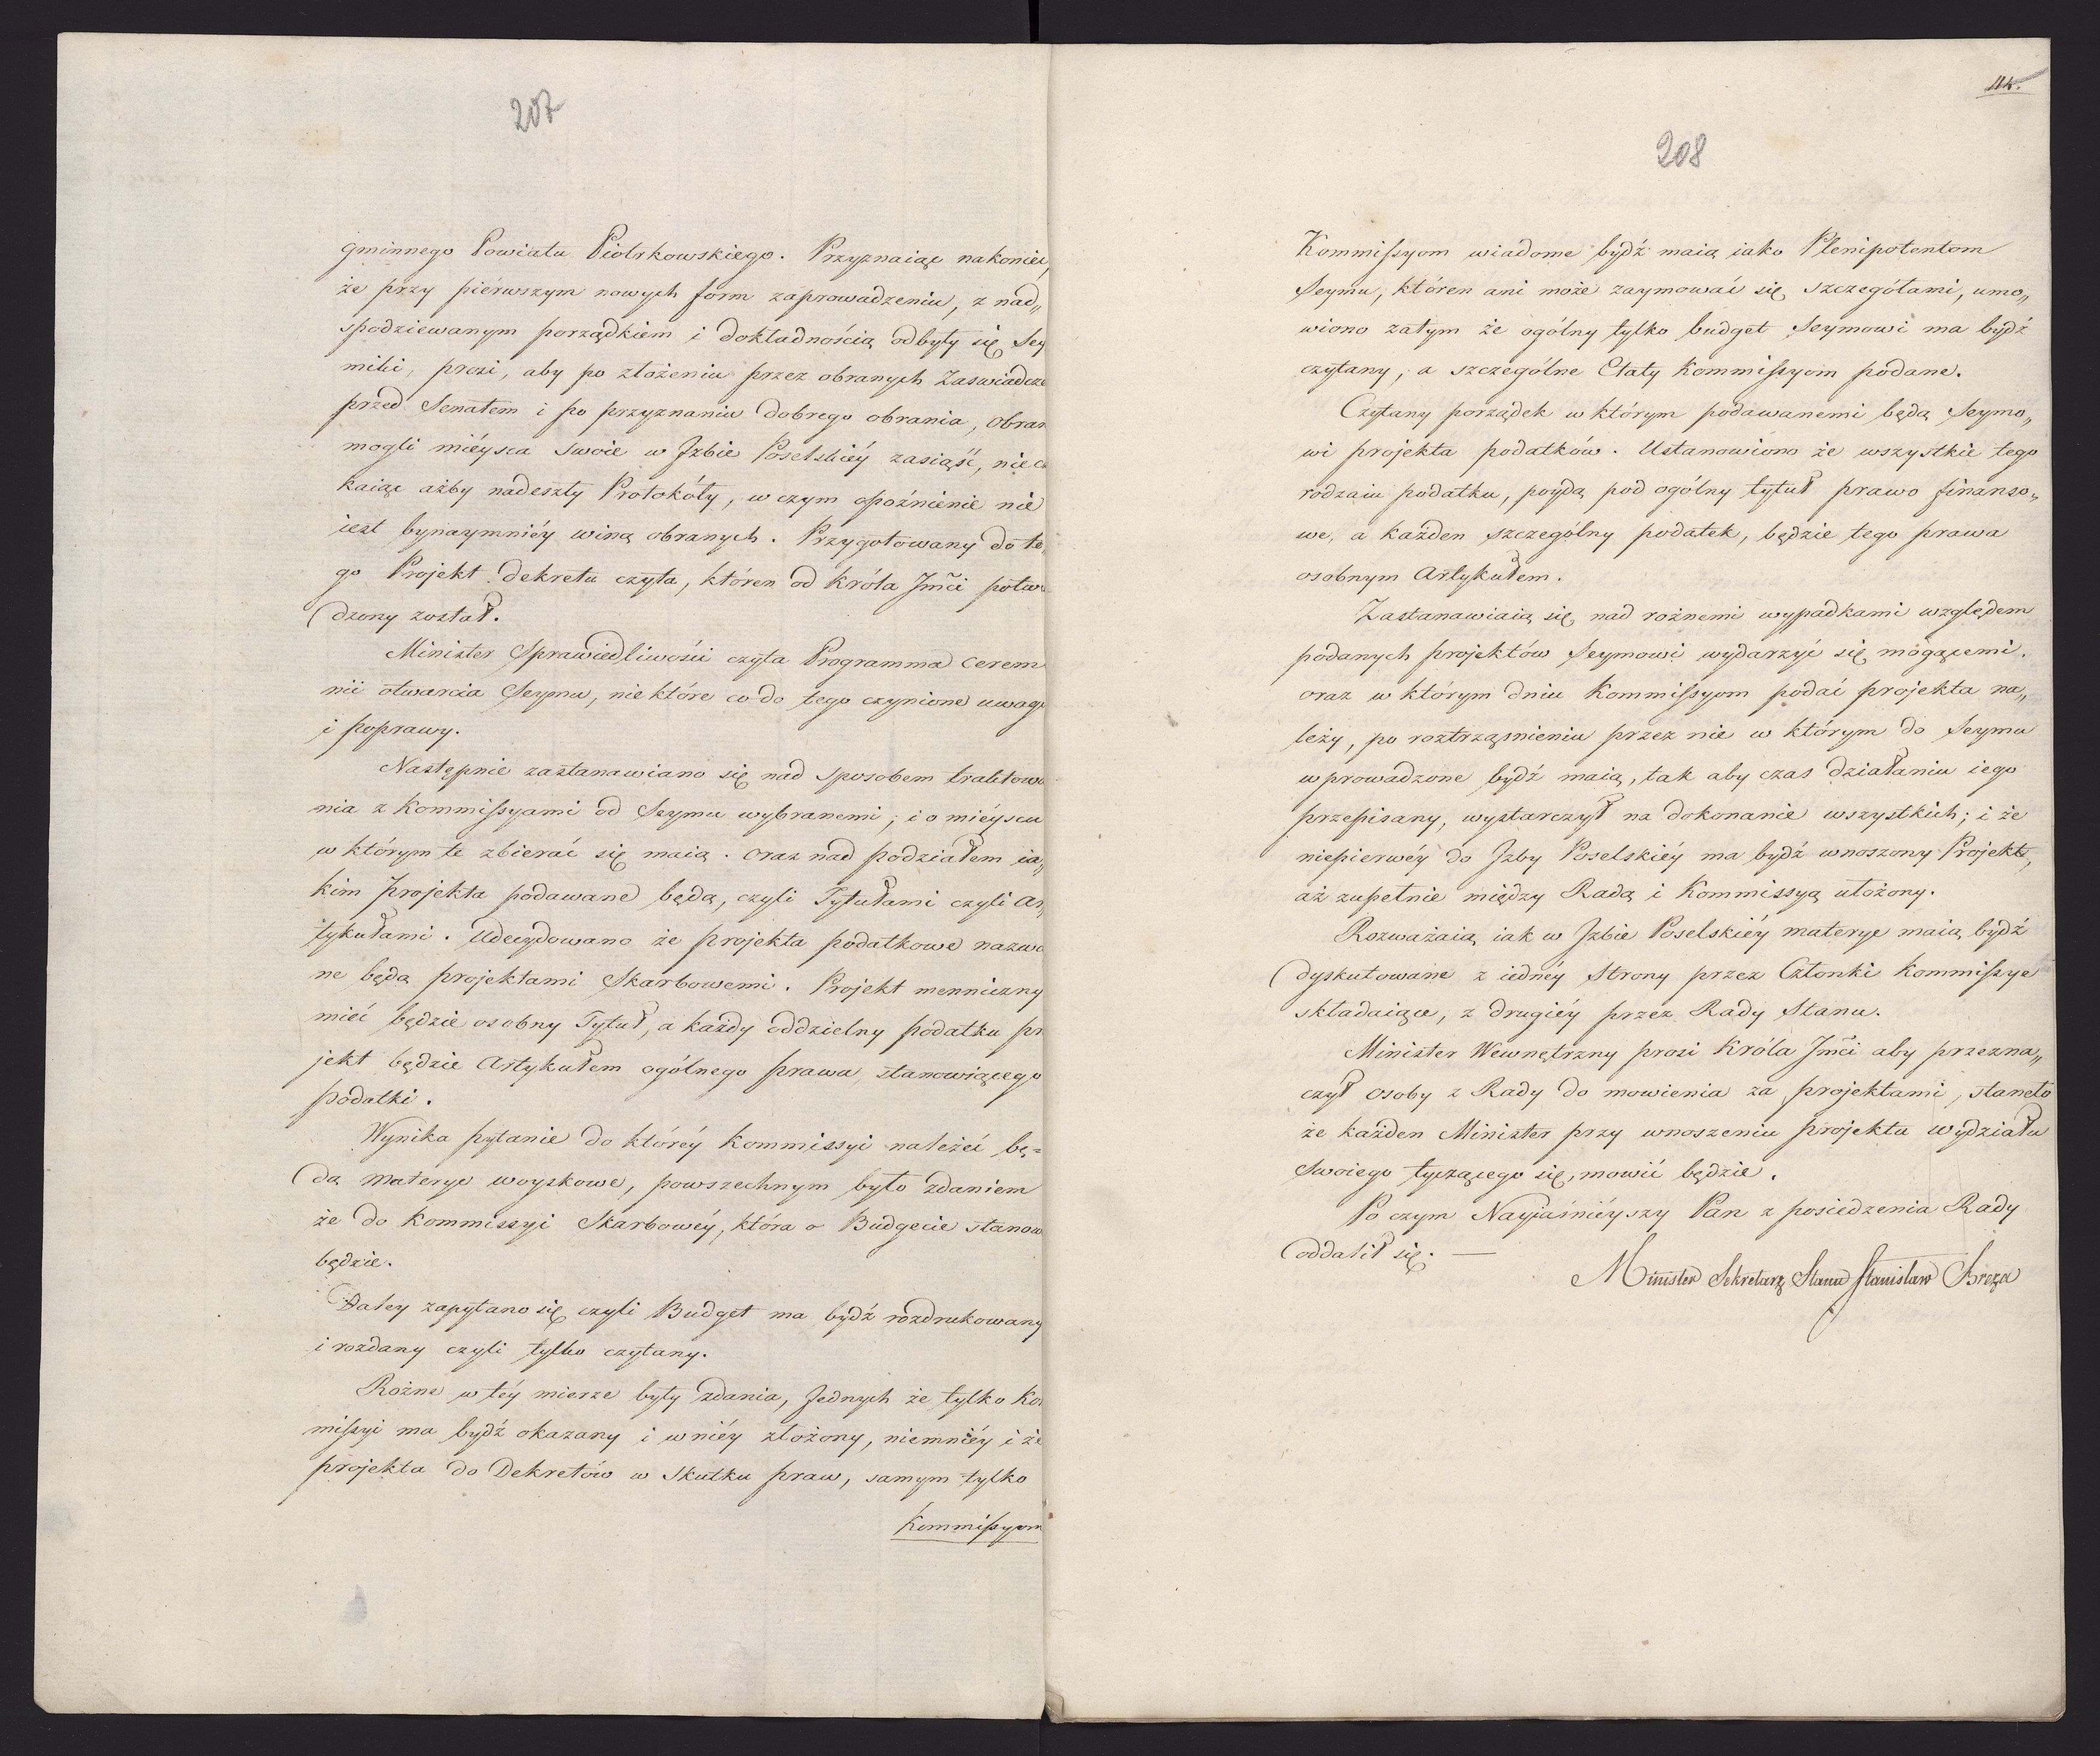 207
gminnego Powiatu Piotrkowskiego. Przyznaiąc nakoniec,
że przy piérwszym nowych form zaprowadzeniu, z nad„
spodziewanym porządkiem i dokładnością odbyły się Sey
miki, prosi, aby po złożeniu przez obranych Zaswiadcze
przed Senatem i po przyznaniu dobrego obrania, obran
mogli miéysca swoie w Jzbie Poselskiéy zasiąść, niecz
kaiąc ażby nadeszły Protokóły, w czym opoźnienie nie
iest bynaymniéy winą obranych. Przygotowany do te„
go Projekt Dekretu czyta, któren od Króla Jmći potwi
dzony został.
Minister Sprawiedliwości czyta Programma Cerem
nii otwarcia Seymu, nie które co do tego czynione uwagi
i poprawy.
Następnie zastanawiano się nad sposobem traktowa
nia z Kommissyami od Seymu wybranemi; i o miéyscu
w którym te zbierać się maią. oraz nad podziałem ia„
kim projekta podawane będą, czyli Tytułami czyli Ar„
tykułami. Udecydowano że projekta podatkowe nazwa
ne będą projektami Skarbowemi. Projekt menniczny
mieć będzie osobny Tytuł, a każdy oddzielny podatku pr
jekt będzie Artykułem ogólnego prawa, stanowiącego
podatki.
Wynika pytanie do któréy Kommissyi należeć bę=
dą materye woyskowe, powszechnym było zdaniem
że do Kommissyi Skarbowéy, która o Budgecie stanow
będzie.
Daley zapytano się czyli Budget ma bydź rozdrukowany
i rozdany czyli tylko czytany.
Rożne w téy mierze były zdania, Jednych że tylko Kom
missyi ma bydź okazany i w niéy złożony, niemniéy i że
projekta do Dekretów w skutku praw, samym tylko
Kommissyom
114.
208
Kommissyom wiadome bydź maią iako Plenipotentom
Seymu, któren ani może zaymować się szczegółami, umo„
wiono zatym że ogólny tylko budget Seymowi ma bydź
czytany, a szczególne Etaty Kommissyom podane.
Czytany porządek w którym podawanemi będą Seymo„
wi projekta podatków. Ustanowiono że wszystkie tego
rodzaiu podatku, poydą pod ogólny tytuł prawo finanso„
we, a każden szczególny podatek, będzie tego prawa
osobnym Artykułem.
Zastanawiaią się nad rożnemi wypadkami względem
podanych projektów Seymowi wydarzyć się mogącemi.
oraz w którym dniu Kommissyom podać projekta na„
leży, po roztrząśnieniu przez nie w którym do Seymu
wprowadzone bydź maią, tak aby czas działaniu iego
przepisany, wystarczył na dokonanie wszystkich; i że
niepierwéy do Jzby Poselskiéy ma bydź wnoszony Projekt,
aż zupełnie między Radą i Kommissyą ułożony.
Rozważaią iak w Jzbie Poselskiéy materye maią bydź
dyskutowane z iednéy Strony przez Członki Kommissye
składaiące, z drugiéy przez Rady Stanu.
Minister Wewnętrzny prosi Króla Jmći aby przezna„
czył osoby z Rady do mowienia za projektami, staneło
że każden Minister przy wnoszeniu projektu wydziału
Swoiego tyczącego się, mowić będzie.
Po czym Nayiaśniéyszy Pan z posiedzenia Rady
oddalił się. —
Minister Sekretarz Stanu Stanisław Breza